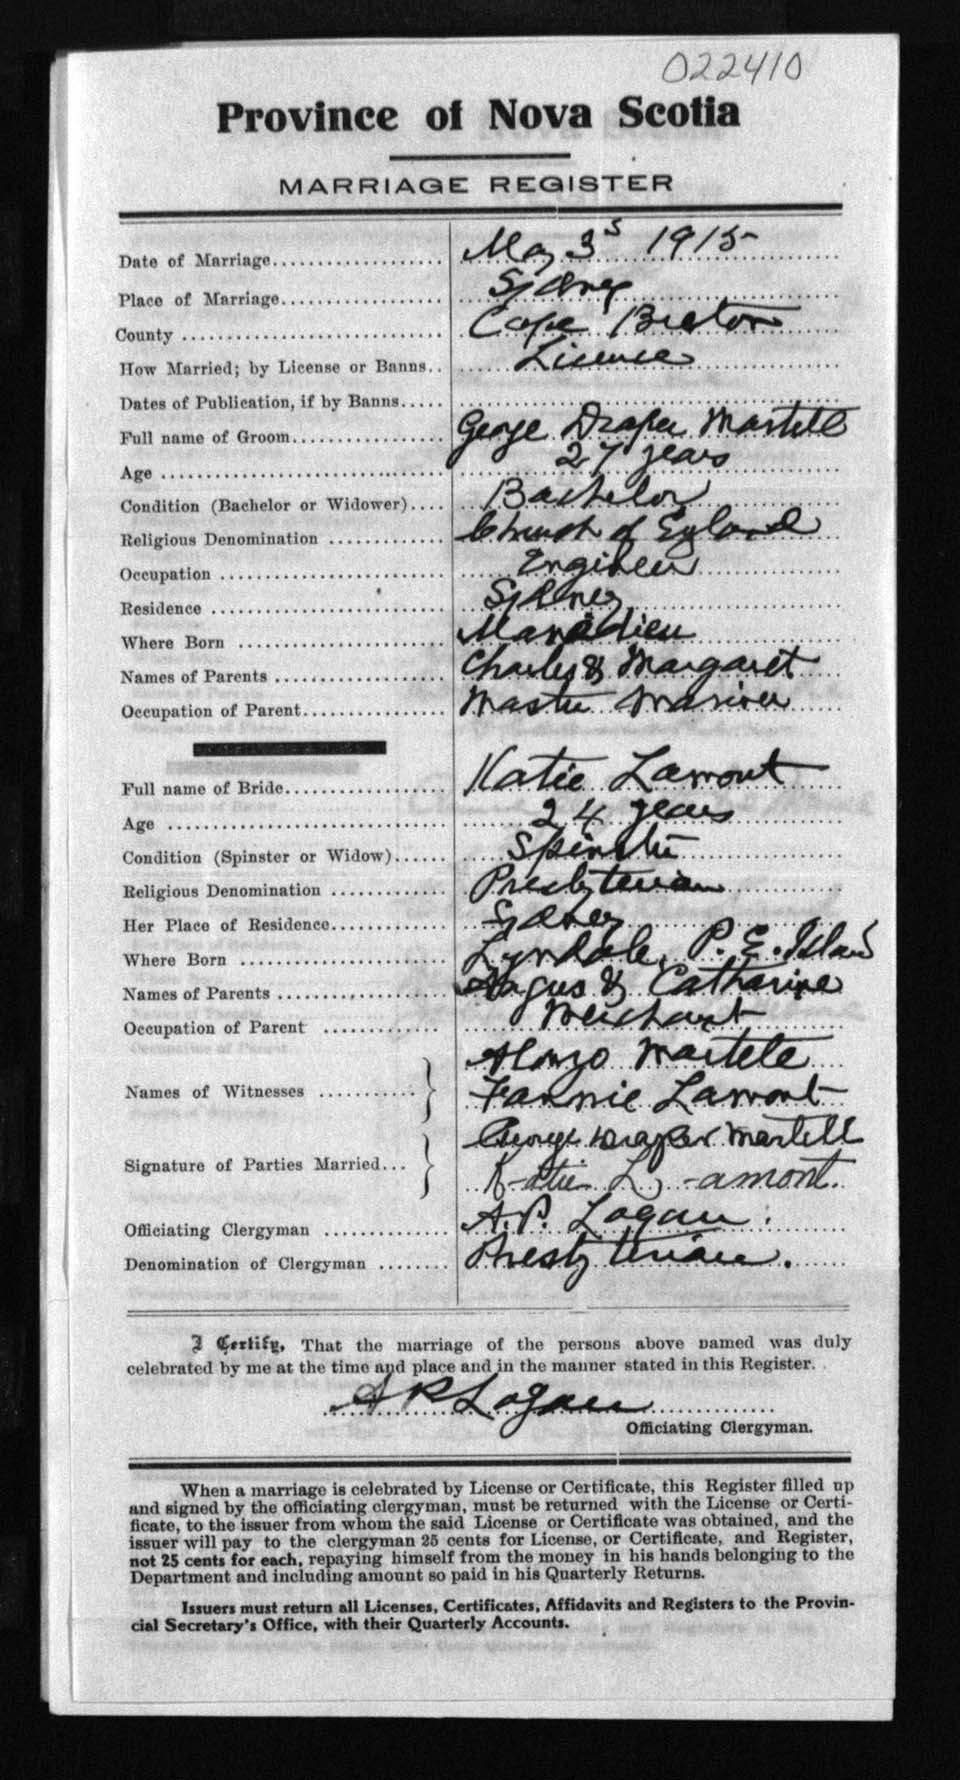 022410
Province of Nova Scotia
MARRIAGE REGISTER
Date of Marriage.................... May 3s 1915
Place of Marriage................... Sydney
County ............................. Cape Breton
How Married; by License or Banns.. Licence
Dates of Publication, if by Banns.....
Full name of Groom.................. George Draper Martell
Age ................................ 27 years
Condition (Bachelor or Widower).... Bachelor
Religious Denomination ............. Church of England
Occupation ......................... Engineer
Residence .......................... Sydney
Where Born ......................... Mainadieu
Names of Parents ................... Charles & Margaret
Occupation of Parent................ Master Mariner
Full name of Bride.................. Katie Lamont
Age ................................ 24 years
Condition (Spinster or Widow)...... Spinster
Religious Denomination ............. Presbyterian
Her Place of Residence.............. Sydney
Where Born ......................... Lyndale, P. E. Island
Names of Parents ................... Angus & Catharine
Occupation of Parent ............... Merchant
Names of Witnesses ........... Alonzo Martell
Fannie Lamont
Signature of Parties Married... George Draper Martell
Katie L. Lamont.
Officiating Clergyman .............. A.P. Logan
Denomination of Clergyman ........ Presbyterian.
I Certify, That the marriage of the persons above named was duly
celebrated by me at the time and place and in the manner stated in this Register.
A P Logan
Officiating Clergyman.
When a marriage is celebrated by License or Certificate, this Register filled up
and signed by the officiating clergyman, must be returned with the License or Certi-
ficate, to the issuer from whom the said License or Certificate was obtained, and the
issuer will pay to the clergyman 25 cents for License, or Certificate, and Register,
not 25 cents for each, repaying himself from the money in his hands belonging to the
Department and including amount so paid in his Quarterly Returns.
Issuers must return all Licenses, Certificates, Affidavits and Registers to the Provin-
cial Secretary's Office, with their Quarterly Accounts.